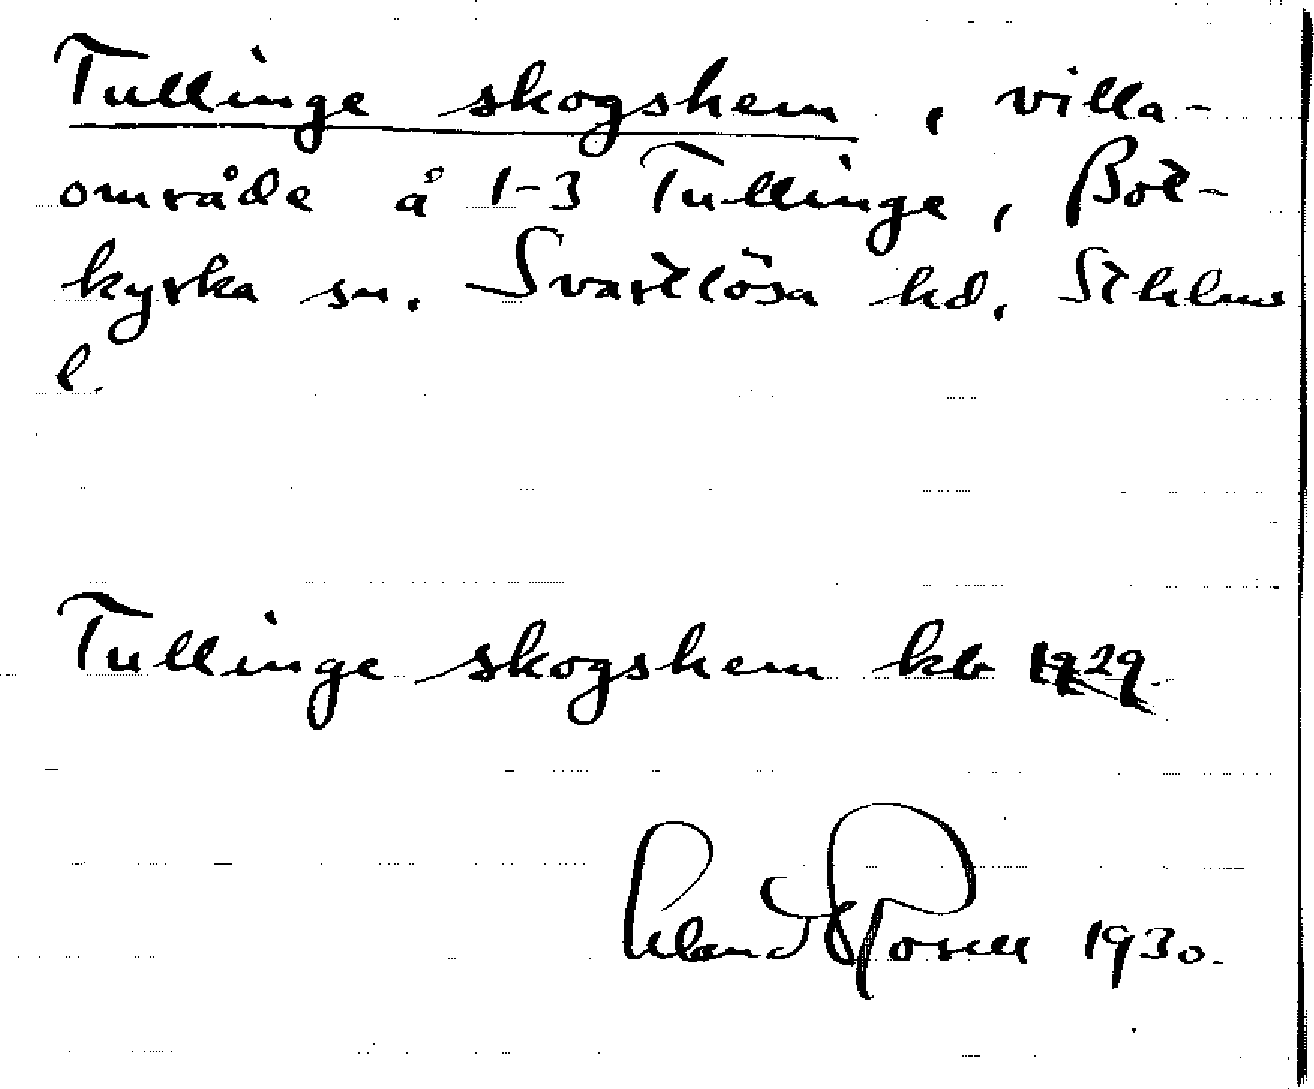 Tullinge skogshem, villa-
område å 1-3 Tullinge, Bot-
kyrka sn. Svartlösa hd. Sthlms
l.
Tullinge skogshem kb 1929.
Erland Rosell 1930.